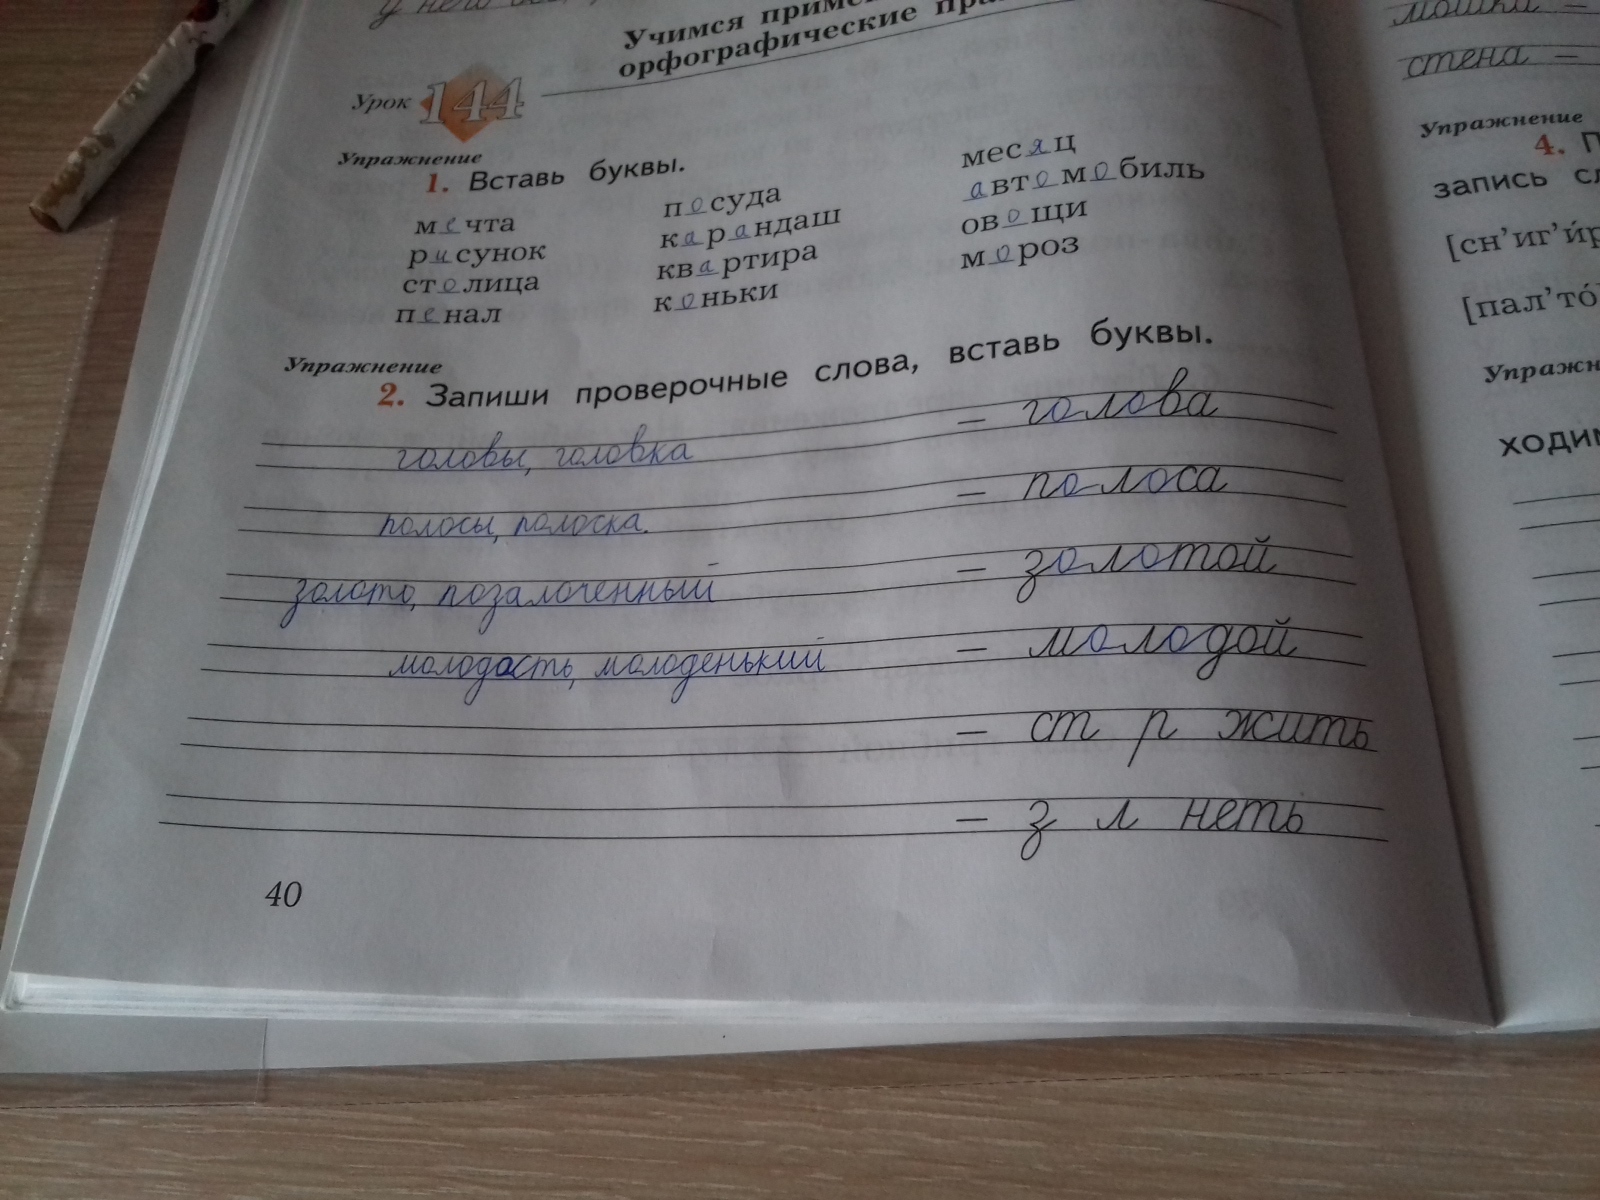 у него
Учимся
орфографические
Урок 144
Упражнение
1. Вставь буквы.
мечта
рисунок
столица
пенал
посуда
карандаш
квартира
коньки
месяц
автомобиль
овощи
мороз
Упражнение
2. Запиши проверочные слова, вставь буквы.
головы, головка – голова
полосы, полоска. – полоса
золото, позалоченный – золотой
молодость, молоденький – молодой
– ст р жить
– з л неть
40
мошка –
стена –
Упражнение
4. П
запись сл
[сн’иг’и́р
[пал’то́
Упражн
ходим